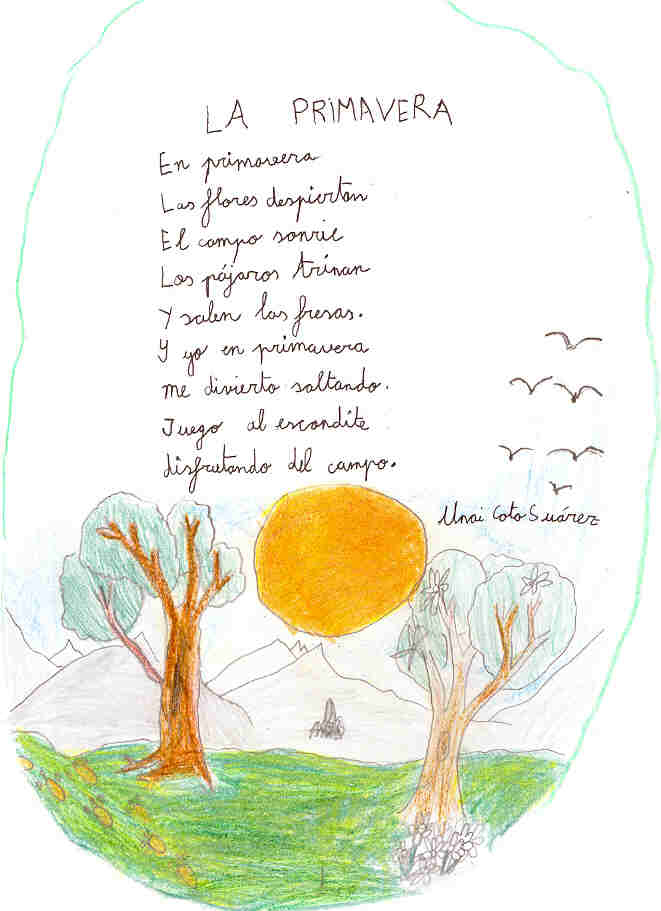 LA PRIMAVERA
En primavera
Las flores despiertan
El campo sonríe
Los pájaros trinan
Y salen las fresas.
Y yo en primavera
me divierto saltando.
Juego al escondite
disfrutando del campo.
Unai Coto Suárez